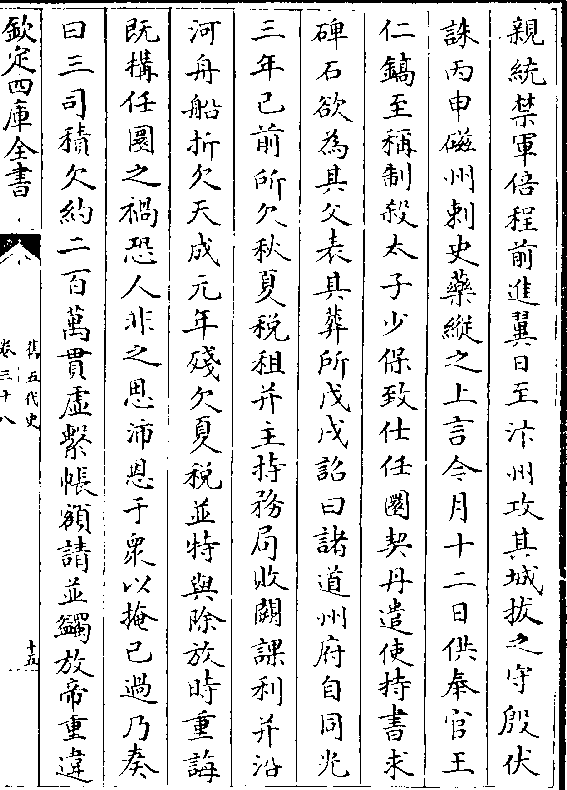 親統禁軍倍程前進翼日至汴州攻其城拔之守殷伏
誅丙申磁州刺史藥縱之上言今月十二日供奉官王
仁鎬至稱制殺太子少保致仕任圜契丹遣使持書求
碑石欲為其父表其葬所戊戌詔曰諸道州府自同光
三年已前所欠秋夏稅租并主持務局敗闕課利并沿
河舟船折欠天成元年殘欠夏稅並特與除放時重誨
既構任圜之禍恐人非之思沛恩于衆以掩已過乃奏
曰三司積欠約二百萬貫虛繫帳額請並蠲放帝重違
欽定四庫全書
舊五代史
卷三十八
十五